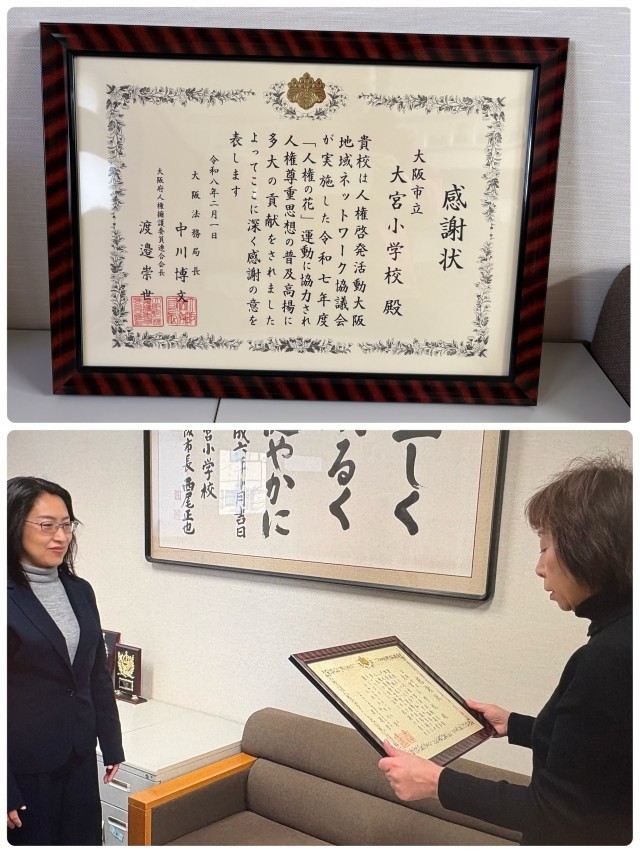 感謝状
大阪市立
大宮小学校 殿
貴校は人権啓発活動大阪
地域ネットワーク協議会
が実施した令和七年度
「人権の花」運動に協力され
人権尊重思想の普及高揚に
多大の貢献をされました
よってここに深く感謝の意を
表します
令和八年二月一日
大阪法務局長
中川博文
大阪府人権擁護委員連合会長
渡邉崇世
しく
るく
やかに
成六年
月吉日
宮小学校
阪市長 西尾正也